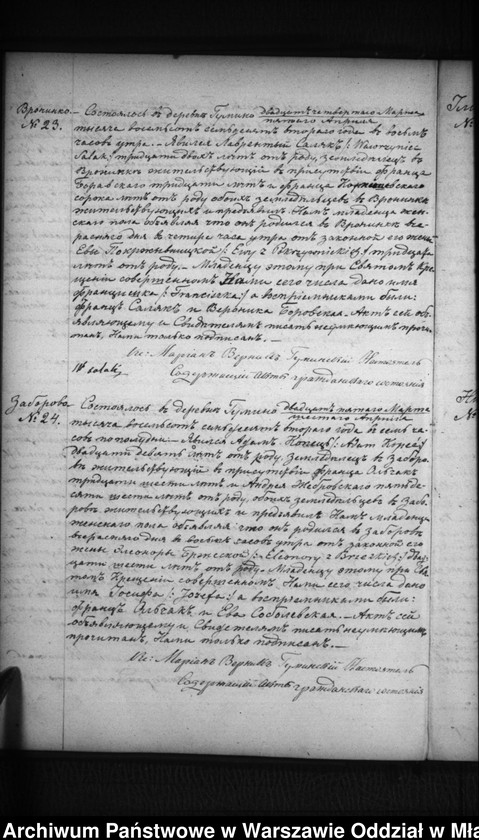 Вронинко
№ 23.
Состоялось въ деревнѣ Гумино двадцать четвертаго Марта
пятаго Апрѣля
тысяча восемьсотъ семьдесятъ втораго года въ восемь
часовъ утра. Явился Лаврентый Салякъ /: Wawrzyniec
Salak:/ тридцати двухъ лѣтъ отъ роду, земледѣлецъ въ
Вронинкѣ жительствующій въ присутствіи Франца
Боравскаго тридцати лѣтъ и Франца
сорока лѣтъ отъ роду обоихъ земледѣльцевъ въ Вронинкѣ
жительствующихъ и предъявилъ Намъ младенца жен-
скаго пола объявляя что онъ родился въ Вронинкѣ вче-
расняго дня въ четыре часа утра отъ законной его жены
Евы /: Ewy z тридцати
лѣтъ отъ роду. Младенцу этому при Святомъ Кре-
щеніи совершенномъ Нами сего числа дано имя
Францишка /: Franciszka:/ а воспріемниками были:
Францъ Салякъ и Вероника Боровская. Актъ сей объ-
являющему и Свидѣтелямъ писать неумѣющимъ прочи-
танъ, Нами только подписанъ.
Кс: Маріанъ Гуминскій Настоятель
Содержащій Акты гражданскаго состоянія
Заборово
№ 24.
Состоялось въ деревнѣ Гумино двадцать пятаго Марта
шестаго Апрѣля
тысяча восемьсотъ семьдесятъ втораго года въ семь ча-
совъ пополудни. Явился Адамъ Копецъ /: Adam Kopeć:/
двадцати девять лѣтъ отъ роду, земледѣлецъ въ Заборо-
вѣ жительствующій въ присутствіи Франца Ольчакъ
тридцати шести лѣтъ и Андрея Жебровскаго пятьде-
сяти шести лѣтъ отъ роду, обоихъ земледѣльцевъ въ Забо-
ровѣ жительствующихъ и предъявилъ Намъ младенца
женскаго пола объявляя: что онъ родился въ Заборовѣ
вчерасняго дня въ восемь часовъ утра отъ законной его
жены Елеоноры Бржеской /: Eleonory z Brzeskich:/ двад-
цати шести лѣтъ отъ роду. Младенцу этому при Свя-
томъ Крещеніи совершенномъ Нами сего числа дано
имя Іосифа /: Józefa:/ а воспріемниками были:
Францъ Ольчакъ и Ева Соболевская. Актъ сей
объявляющему и Свидѣтелямъ писать неумѣющимъ
прочитанъ, Нами только подписанъ.
Кс: Маріанъ Гуминскій Настоятель
Содержащій Акты гражданскаго состоянія
Archiwum Państwowe w Warszawie Oddział w Mła